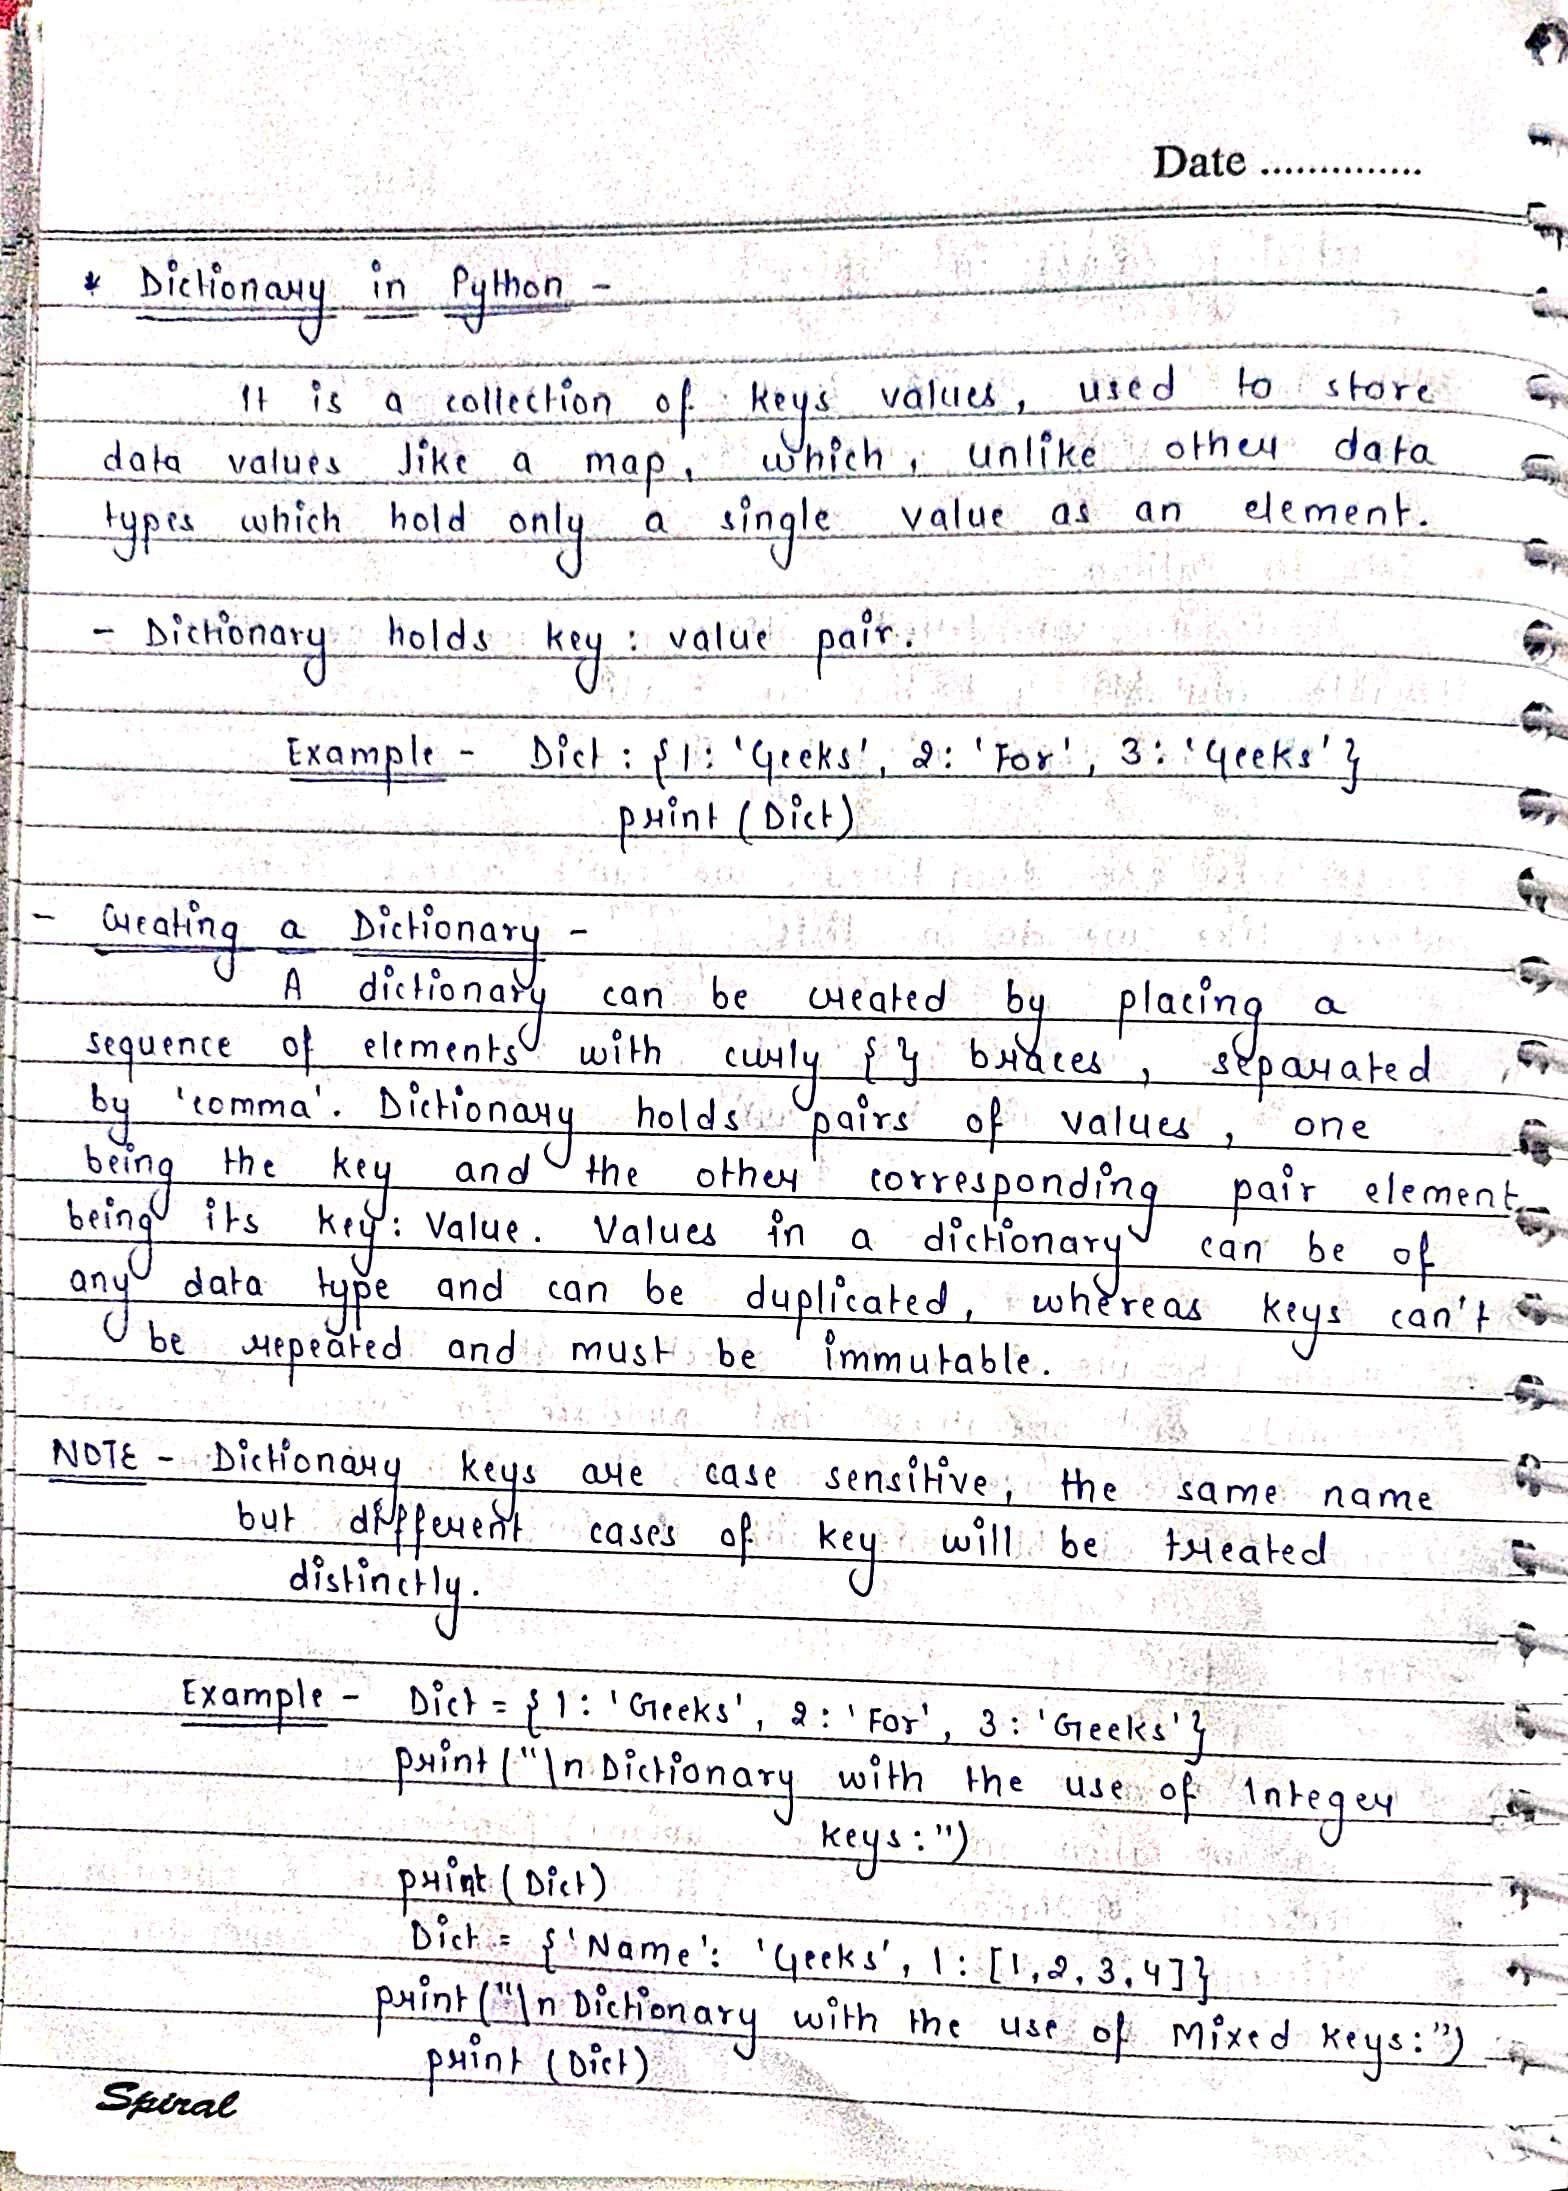 Date ...............
* Dictionary in Python -
It is a collection of keys values, used to store
data values like a map, which, unlike other data
types which hold only a single value as an element.
- Dictionary holds key : value pair.
Example - Dict : {1: 'Geeks', 2: 'For', 3: 'Geeks'}
print (Dict)
- Creating a Dictionary -
A dictionary can be created by placing a
sequence of elements with curly { } braces, separated
by 'comma'. Dictionary holds pairs of values, one
being the key and the other corresponding pair element
being its key: Value. Values in a dictionary can be of
any data type and can be duplicated, whereas keys can't
be repeated and must be immutable.
NOTE - Dictionary keys are case sensitive, the same name
but different cases of key will be treated
distinctly.
Example - Dict = {1: 'Geeks', 2: 'For', 3: 'Geeks'}
print ("\n Dictionary with the use of Integer
keys:")
print (Dict)
Dict = {'Name': 'Geeks', 1: [1,2,3,4]}
print ("\n Dictionary with the use of Mixed keys:")
print (Dict)
Spiral